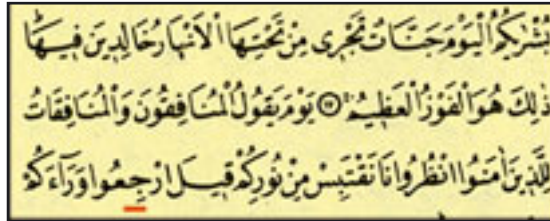 بُشْرٰيكُمُ الْيَوْمَ جَنَّاتٌ تَجْرٖى مِنْ تَحْتِهَا الْاَنْهَارُ خَالِدٖينَ فٖيهَاۜ
ذٰلِكَ هُوَ الْفَوْزُ الْعَظٖيمُۚ ﴿١٢﴾ يَوْمَ يَقُولُ الْمُنَافِقُونَ وَالْمُنَافِقَاتُ
لِلَّذٖينَ اٰمَنُوا انْظُرُونَا نَقْتَبِسْ مِنْ نُورِكُمْۚ قٖيلَ ارْجِعُوا وَرَٓاءَكُمْ